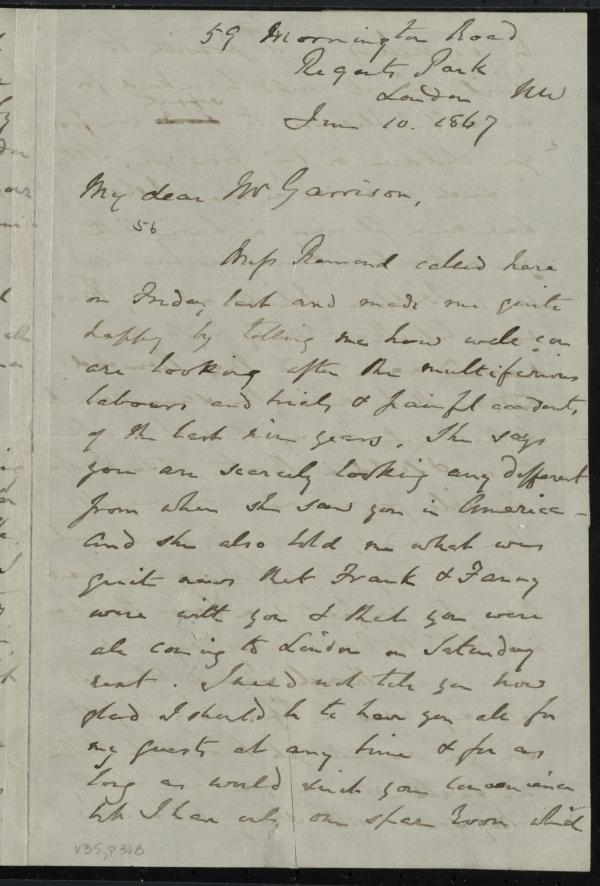 59 Mornington Road
Regents Park
London NW
June 10. 1867
My dear Mr Garrison,
56
Miss Remond called here
on Friday last and made me quite
happy by telling me how well you
are looking after the multifarious
labours and trials & painful accidents
of the last nine years. She says
you are scarcely looking any different
from when she saw you in America –
and she also told me what was
quite news that Frank & Fanny
were with you & that you were
all coming to London on Saturday
next. I need not tell you how
glad I should be to have you all for
my guests at any time & for as
long as would suit your convenience
but I have only one spare room which
V35, P30B